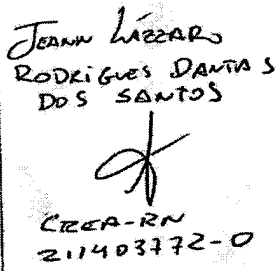 JEANN LÁZZARO
RODRIGUES DANTAS
DOS SANTOS
CREA-RN
211403772-0